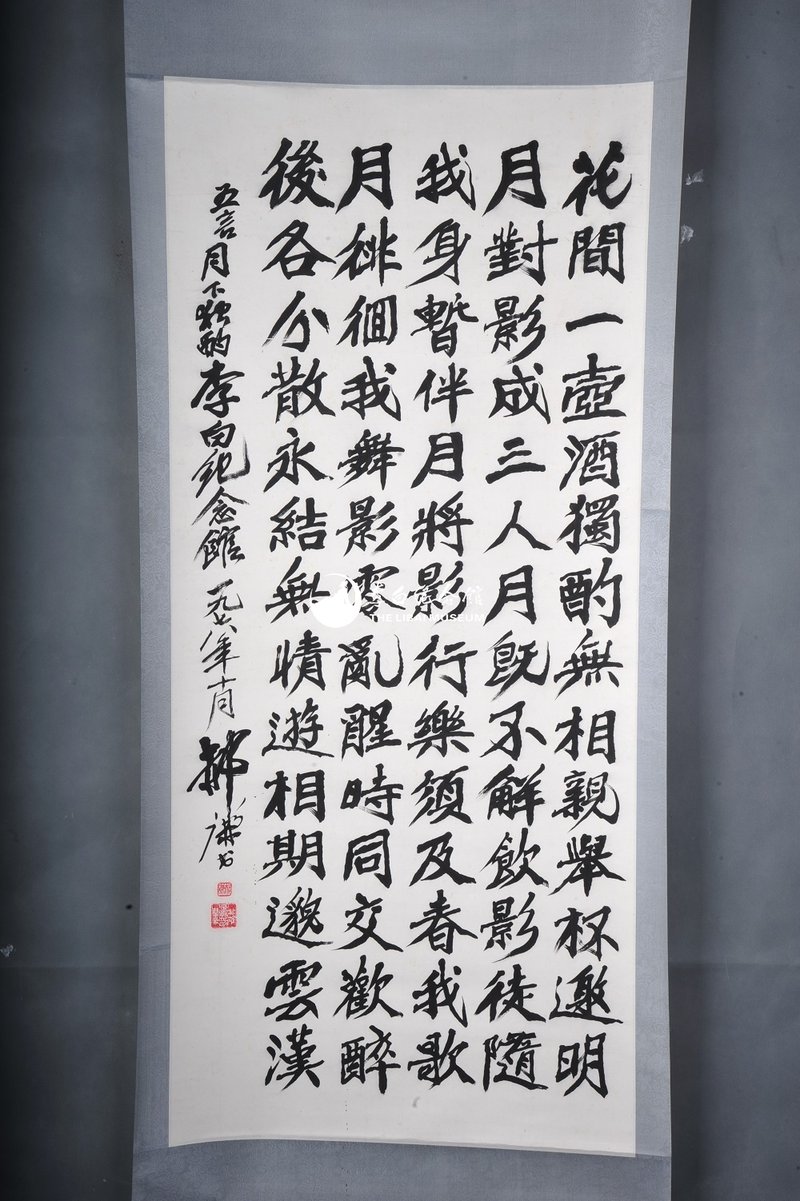 花間一壺酒獨酌無相親舉杯邀明
月對影成三人月既不解飲影徒隨
我身暫伴月將影行樂須及春我歌
月徘徊我舞影零亂醒時同交歡醉
後各分散永結無情遊相期邈雲漢
五言月下獨酌李白纪念館
THE LIBAI MUSEUM